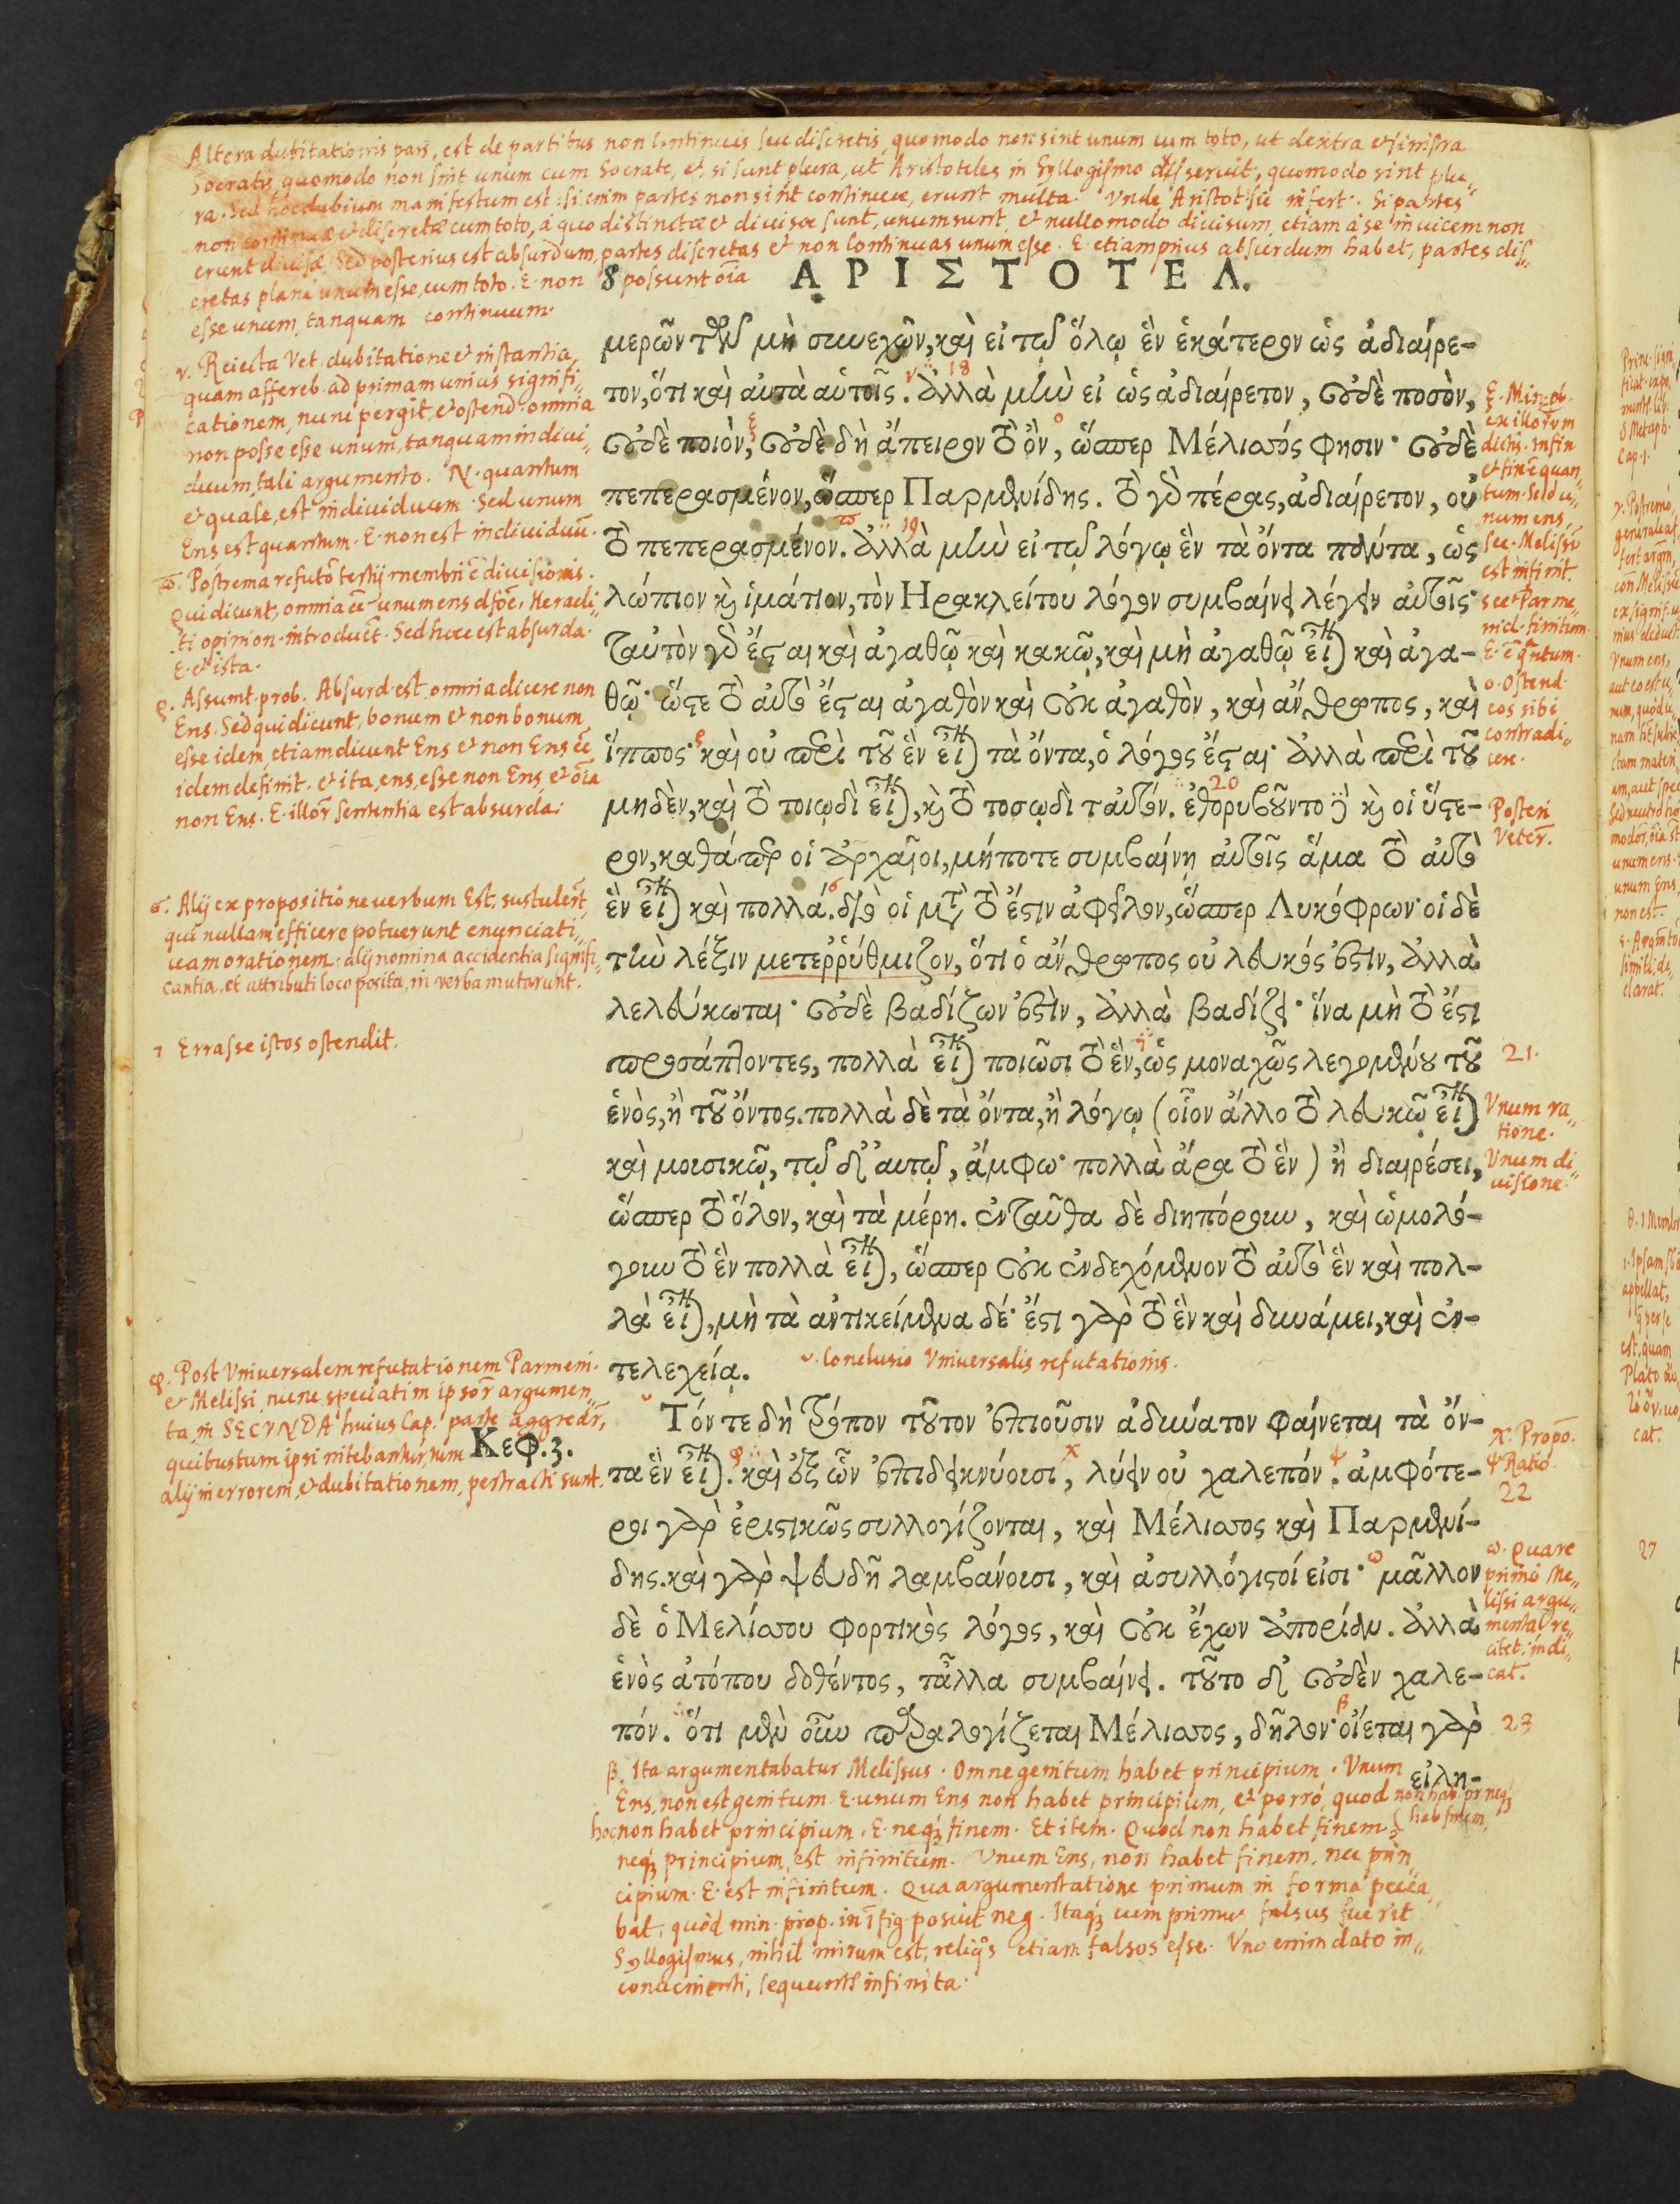 Altera dubitationis pars, est de partibus non continuis seu discretis, quomodo non sint unum cum toto, ut dextra et sinistra
Socratis, quomodo non sint unum cum Socrate, et, si sunt plura, ut Aristoteles in Syllogismo disseruit, quomodo sint plu„
ra. Sed hoc dubium manifestum est: si enim partes non sint continuae, erunt multa. Unde Aristot. sic infert. Si partes
non continuae et discretae cum toto, à quo distinctae et divisae sunt, unum sunt, et nullo modo divisum, etiam à se invicem non
erunt divisae. Sed posterius est absurdum, partes discretas et non continuas unum esse. E. etiam prius absurdum habet, partes dis„
cretas plane unum esse, cum toto. E. non possunt oīa
esse unum, tanquam continuum.
8 ΑΡΙΣΤΟΤΕΛ.
μερῶν τῶν μὴ συνεχῶν, καὶ εἰ τῷ ὅλῳ ἓν ἑκάτερον ὡς ἀδιαίρε-
τον, ὅτι καὶ αὐτὰ αὑτοῖς. ἀλλὰ μὴν εἰ ὡς ἀδιαίρετον, οὐδὲ ποσὸν,
οὐδὲ ποιὸν, οὐδὲ δὴ ἄπειρον τὸ ὂν, ὥσπερ Μέλισσός φησιν· οὐδὲ
πεπερασμένον, ὥσπερ Παρμενίδης. τὸ γὰρ πέρας, ἀδιαίρετον, οὐ
τὸ πεπερασμένον. ἀλλὰ μὴν εἰ τῷ λόγῳ ἓν τὰ ὄντα πάντα, ὡς
λώπιον καὶ ἱμάτιον, τὸν Ηρακλείτου λόγον συμβαίνει λέγειν αὐτοῖς·
ταὐτὸν γὰρ ἔσται καὶ ἀγαθῷ καὶ κακῷ, καὶ μὴ ἀγαθῷ εἶναι καὶ ἀγα-
θῷ· ὥστε τὸ αὐτὸ ἔσται ἀγαθὸν καὶ οὐκ ἀγαθὸν, καὶ ἄνθρωπος, καὶ
ἵππος· καὶ οὐ περὶ τοῦ ἓν εἶναι τὰ ὄντα, ὁ λόγος ἔσται· ἀλλὰ περὶ τοῦ
μηδὲν, καὶ τὸ τοιῳδὶ εἶναι, καὶ τὸ τοσῳδὶ ταὐτόν. ἐθορυβοῦντο δὲ καὶ οἱ ὕστε-
ρον, καθάπερ οἱ ἀρχαῖοι, μήποτε συμβαίνῃ αὐτοῖς ἅμα τὸ αὐτὸ
ἓν εἶναι καὶ πολλά. διὸ οἱ μὲν τὸ ἔστιν ἀφεῖλον, ὥσπερ Λυκόφρων· οἱ δὲ
τὴν λέξιν μετερρύθμιζον, ὅτι ὁ ἄνθρωπος οὐ λευκός ἐστιν, ἀλλὰ
λελεύκωται· οὐδὲ βαδίζων ἐστὶν, ἀλλὰ βαδίζει· ἵνα μὴ τὸ ἔστι
προσάπτοντες, πολλὰ εἶναι ποιῶσι τὸ ἓν, ὡς μοναχῶς λεγομένου τοῦ
ἑνὸς, ἢ τοῦ ὄντος. πολλὰ δὲ τὰ ὄντα, ἢ λόγῳ (οἷον ἄλλο τὸ λευκῷ εἶναι
καὶ μουσικῷ, τῷ δ' αυτῷ, ἄμφω· πολλὰ ἄρα τὸ ἓν) ἢ διαιρέσει,
ὥσπερ τὸ ὅλον, καὶ τὰ μέρη. ἐνταῦθα δὲ διηπόρουν, καὶ ὡμολό-
γουν τὸ ἓν πολλὰ εἶναι, ὥσπερ οὐκ ἐνδεχόμενον τὸ αὐτὸ ἓν καὶ πολ-
λὰ εἶναι, μὴ τὰ ἀντικείμενα δέ· ἔστι γὰρ τὸ ἓν καὶ δυνάμει, καὶ ἐν-
τελεχείᾳ.
υ. Conclusio Universalis refutationis.
Τόν τε δὴ τρόπον τοῦτον ἐπιοῦσιν ἀδύνατον φαίνεται τὰ ὄν-
Κεφ. 3.
τα ἓν εἶναι. καὶ ἐξ ὧν ἐπιδεικνύουσι, λύειν οὐ χαλεπόν. ἀμφότε-
ροι γὰρ ἐριστικῶς συλλογίζονται, καὶ Μέλισσος καὶ Παρμενί-
δης. καὶ γὰρ ψευδῆ λαμβάνουσι, καὶ ἀσυλλόγιστοί εἰσι· μᾶλλον
δὲ ὁ Μελίσσου φορτικὸς λόγος, καὶ οὐκ ἔχων ἀπορίαν. ἀλλὰ
ἑνὸς ἀτόπου δοθέντος, τἄλλα συμβαίνει. τοῦτο δ' οὐδὲν χαλε-
πόν. ὅτι μὲν οὖν παραλογίζεται Μέλισσος, δῆλον· οἴεται γὰρ
εἰλη-
ν. Reiecta Vet. dubitatione et instantia,
quam affereb. ad primam unius signifi„
cationem, nunc pergit, et ostend. omnia
non posse esse unum, tanquam indivi„
duum, tali argumento. N. quantum
et quale, est individuum. Sed unum
Ens est quantum. E. non est individuū.
ϖ. Postrema refutō tertij membri ē divisionis.
Qui dicunt, omnia eē unum ens dfōe, Heracli„
ti opinion. introducūt. Sed haec est absurda.
E. et ista.
ρ. Assumt. prob. Absurd. est, omnia dicere non
Ens. Sed qui dicunt, bonum et non bonum
esse idem, etiam dicunt Ens et non Ens eē
idem definit. et ita, ens, esse non Ens, et oīa
non Ens. E. illor̄ sententia est absurda.
σ. Alij ex propositione verbum Est, sustulert,
qui nullam efficere potuerunt enunciati„
vam orationem: alij nomina accidentia signifi„
cantia, et attributi loco posita, in verba mutarunt.
τ Errasse istos ostendit.
φ. Post Universalem refutationem Parmeni.
et Melissi, nunc speciatim ipsor̄ argumen„
ta, in SECVNDA huius Cap. parte aggredr̄,
quibus tum ipsi nitebantur, tum
alij in errorem, et dubitationem, pertracti sunt.
ξ. Min. pb.
ex illorum
dictis. Infin
et fin ē quan
tum. Sed u„
num ens,
sec. Melissū
est infinit.
sec. Parme„
nid. finitum.
E. ē qntum.
ο. Ostend.
eos sibi
contradi„
cere.
Posteri
Veter̄.
18
19
20
21.
Unum ra„
tione.
Unum di„
visione.
χ. Propō.
ψ Ratio.
22
ω. Quare
primo Me„
lissi argu„
mentat re„
citet, indi„
cat.
23
β. Ita argumentabatur Melissus. Omne genitum habet principium. Unum
Ens, non est genitum. E. unum Ens non habet principium, et porrò, quod non hab. pr. neq;
hab finem,
hoc non habet principium. E. neq; finem. Et item. Quod non habet finem
neq; principium, est infinitum. Unum Ens, non habet finem, nec prin
cipium. E. est infinitum. Qua argumentatione primum in forma pecca„
bat, quòd min. prop. in 1 fig. posuit neg. Itaq; cum primus falsus fuerit
Syllogismus, nihil mirum est, reliqs etiam falsos esse. Uno enim dato in„
convenienti, sequunts infinita.